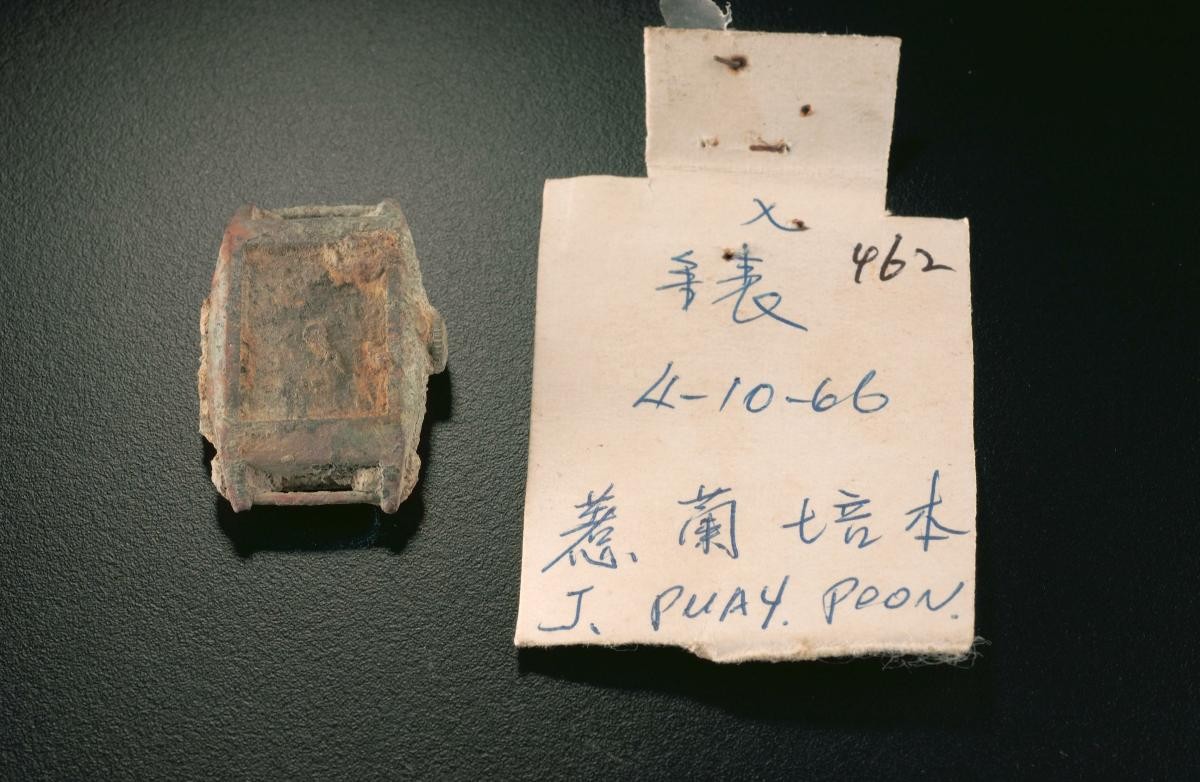 x
手表
462
4-10-66
惹蘭培本
J. PUAY. POON.